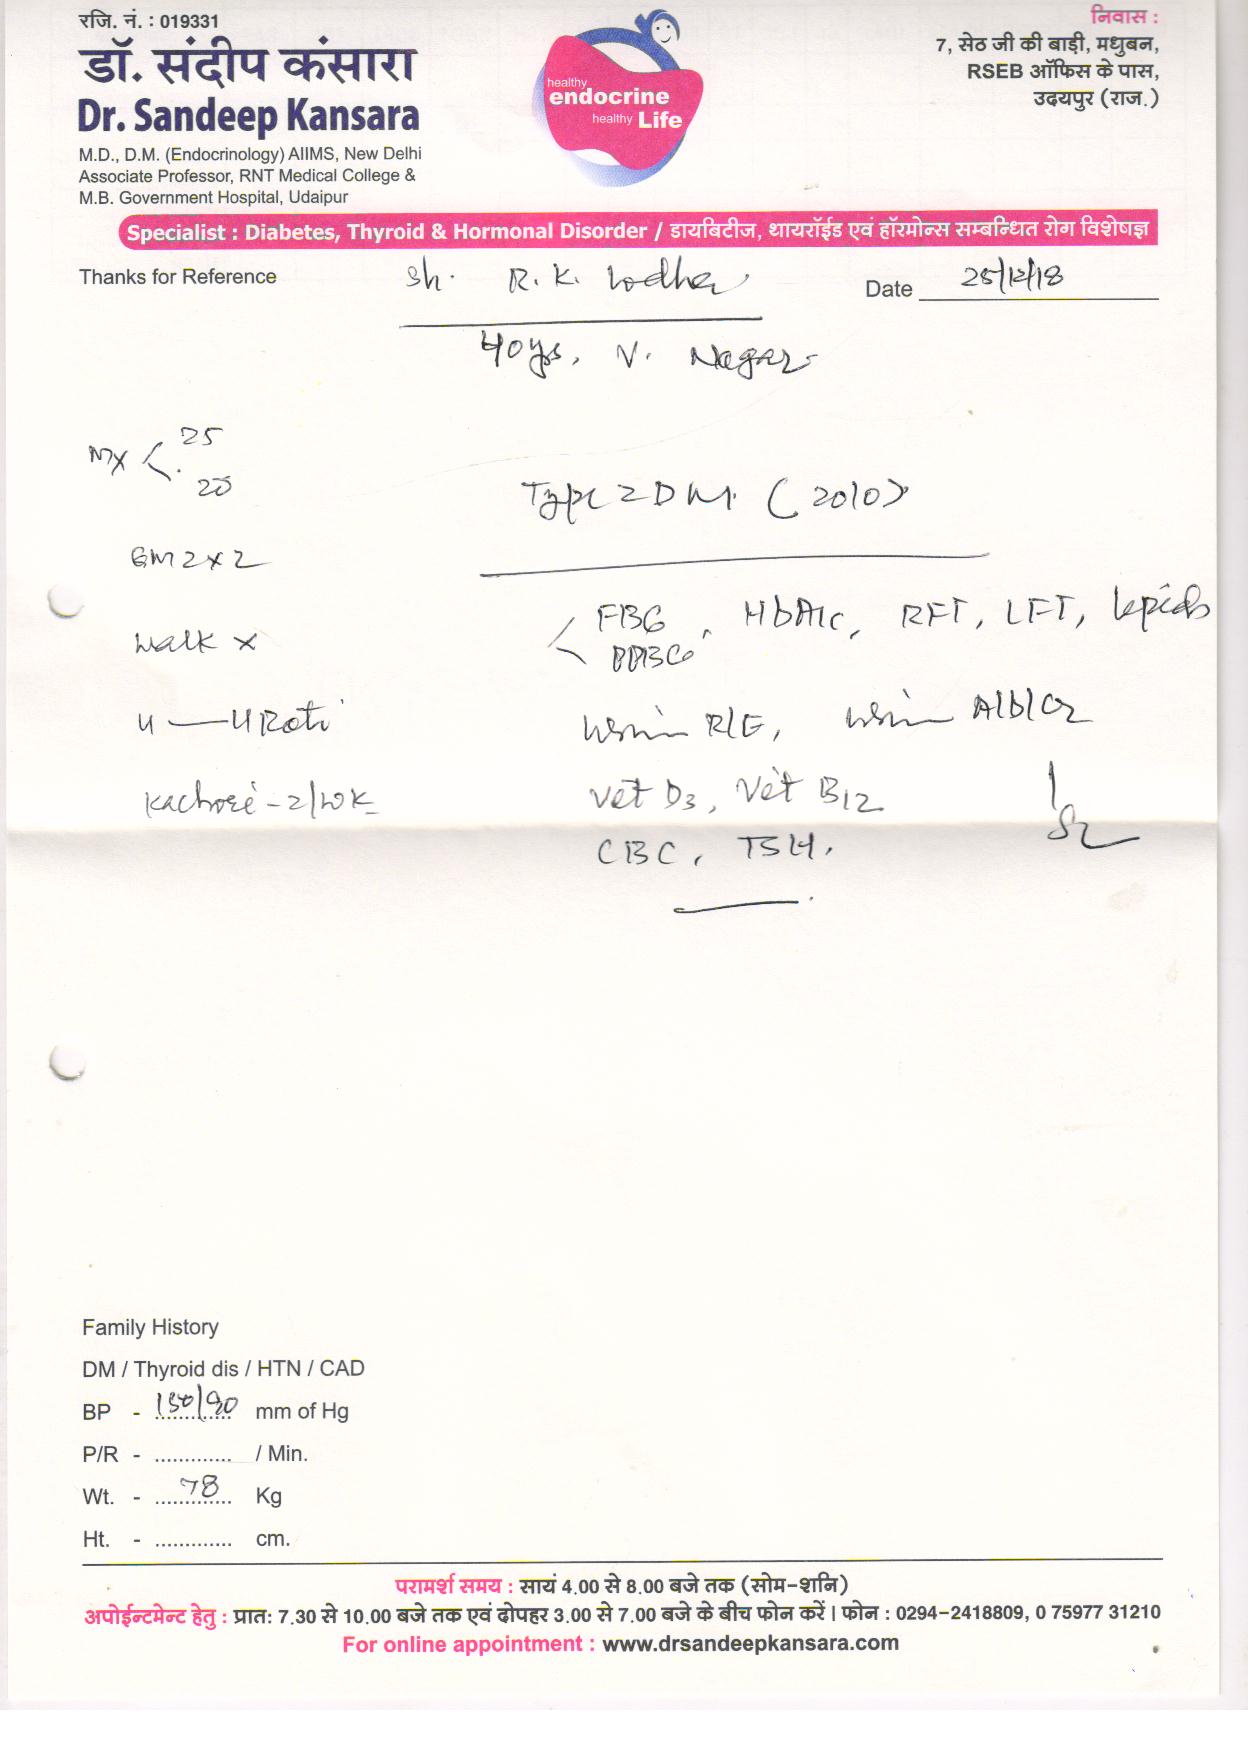 रजि. नं. : 019331
डॉ. संदीप कंसारा
Dr. Sandeep Kansara
M.D., D.M. (Endocrinology) AIIMS, New Delhi
Associate Professor, RNT Medical College &
M.B. Government Hospital, Udaipur
healthy
endocrine
healthy Life
निवास :
7, सेठ जी की बाड़ी, मधुबन,
RSEB ऑफिस के पास,
उदयपुर (राज.)
Specialist : Diabetes, Thyroid & Hormonal Disorder / डायबिटीज, थायरॉईड एवं हॉरमोन्स सम्बन्धित रोग विशेषज्ञ
Thanks for Reference Sh. R. K. Lodha Date 25/12/18
40ys, V. Nagar
Mx < 25
20
Type 2 DM. (2010)
GM2 x 2
FBG, HbA1c, RFT, LFT, Lipids
PPBG
Walk x
4 — 4 Roti
Urine R/E, Urine Alb/Cr
Kachori - 2/wk
Vit D3, Vit B12
CBC, TSH.
Family History
DM / Thyroid dis / HTN / CAD
BP - 130/90 mm of Hg
P/R - ............. / Min.
Wt. - 78 Kg
Ht. - ............. cm.
परामर्श समय : सायं 4.00 से 8.00 बजे तक (सोम-शनि)
अपोईन्टमेन्ट हेतु : प्रात: 7.30 से 10.00 बजे तक एवं दोपहर 3.00 से 7.00 बजे के बीच फोन करें। फोन : 0294-2418809, 0 75977 31210
For online appointment : www.drsandeepkansara.com